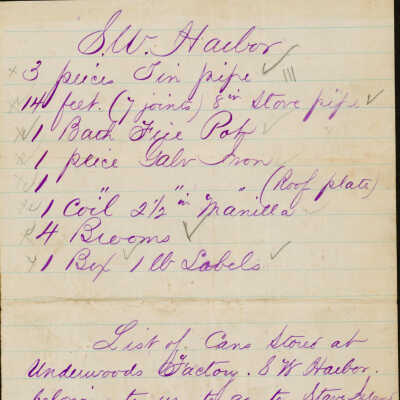 S.W. Harbor
3 peices Tin pipe
14 feet. (7 joints) 8 in Stove pipe
1 Bath Fire Pot
1 peice Galv Iron
1 " " " (Roof plate)
1 Coil 2½ in Manilla
4 Brooms
1 Box 1 lb Labels
List of Cans Stored at
Underwoods Factory. S W Harbor.
belong to us to go to Stave Island